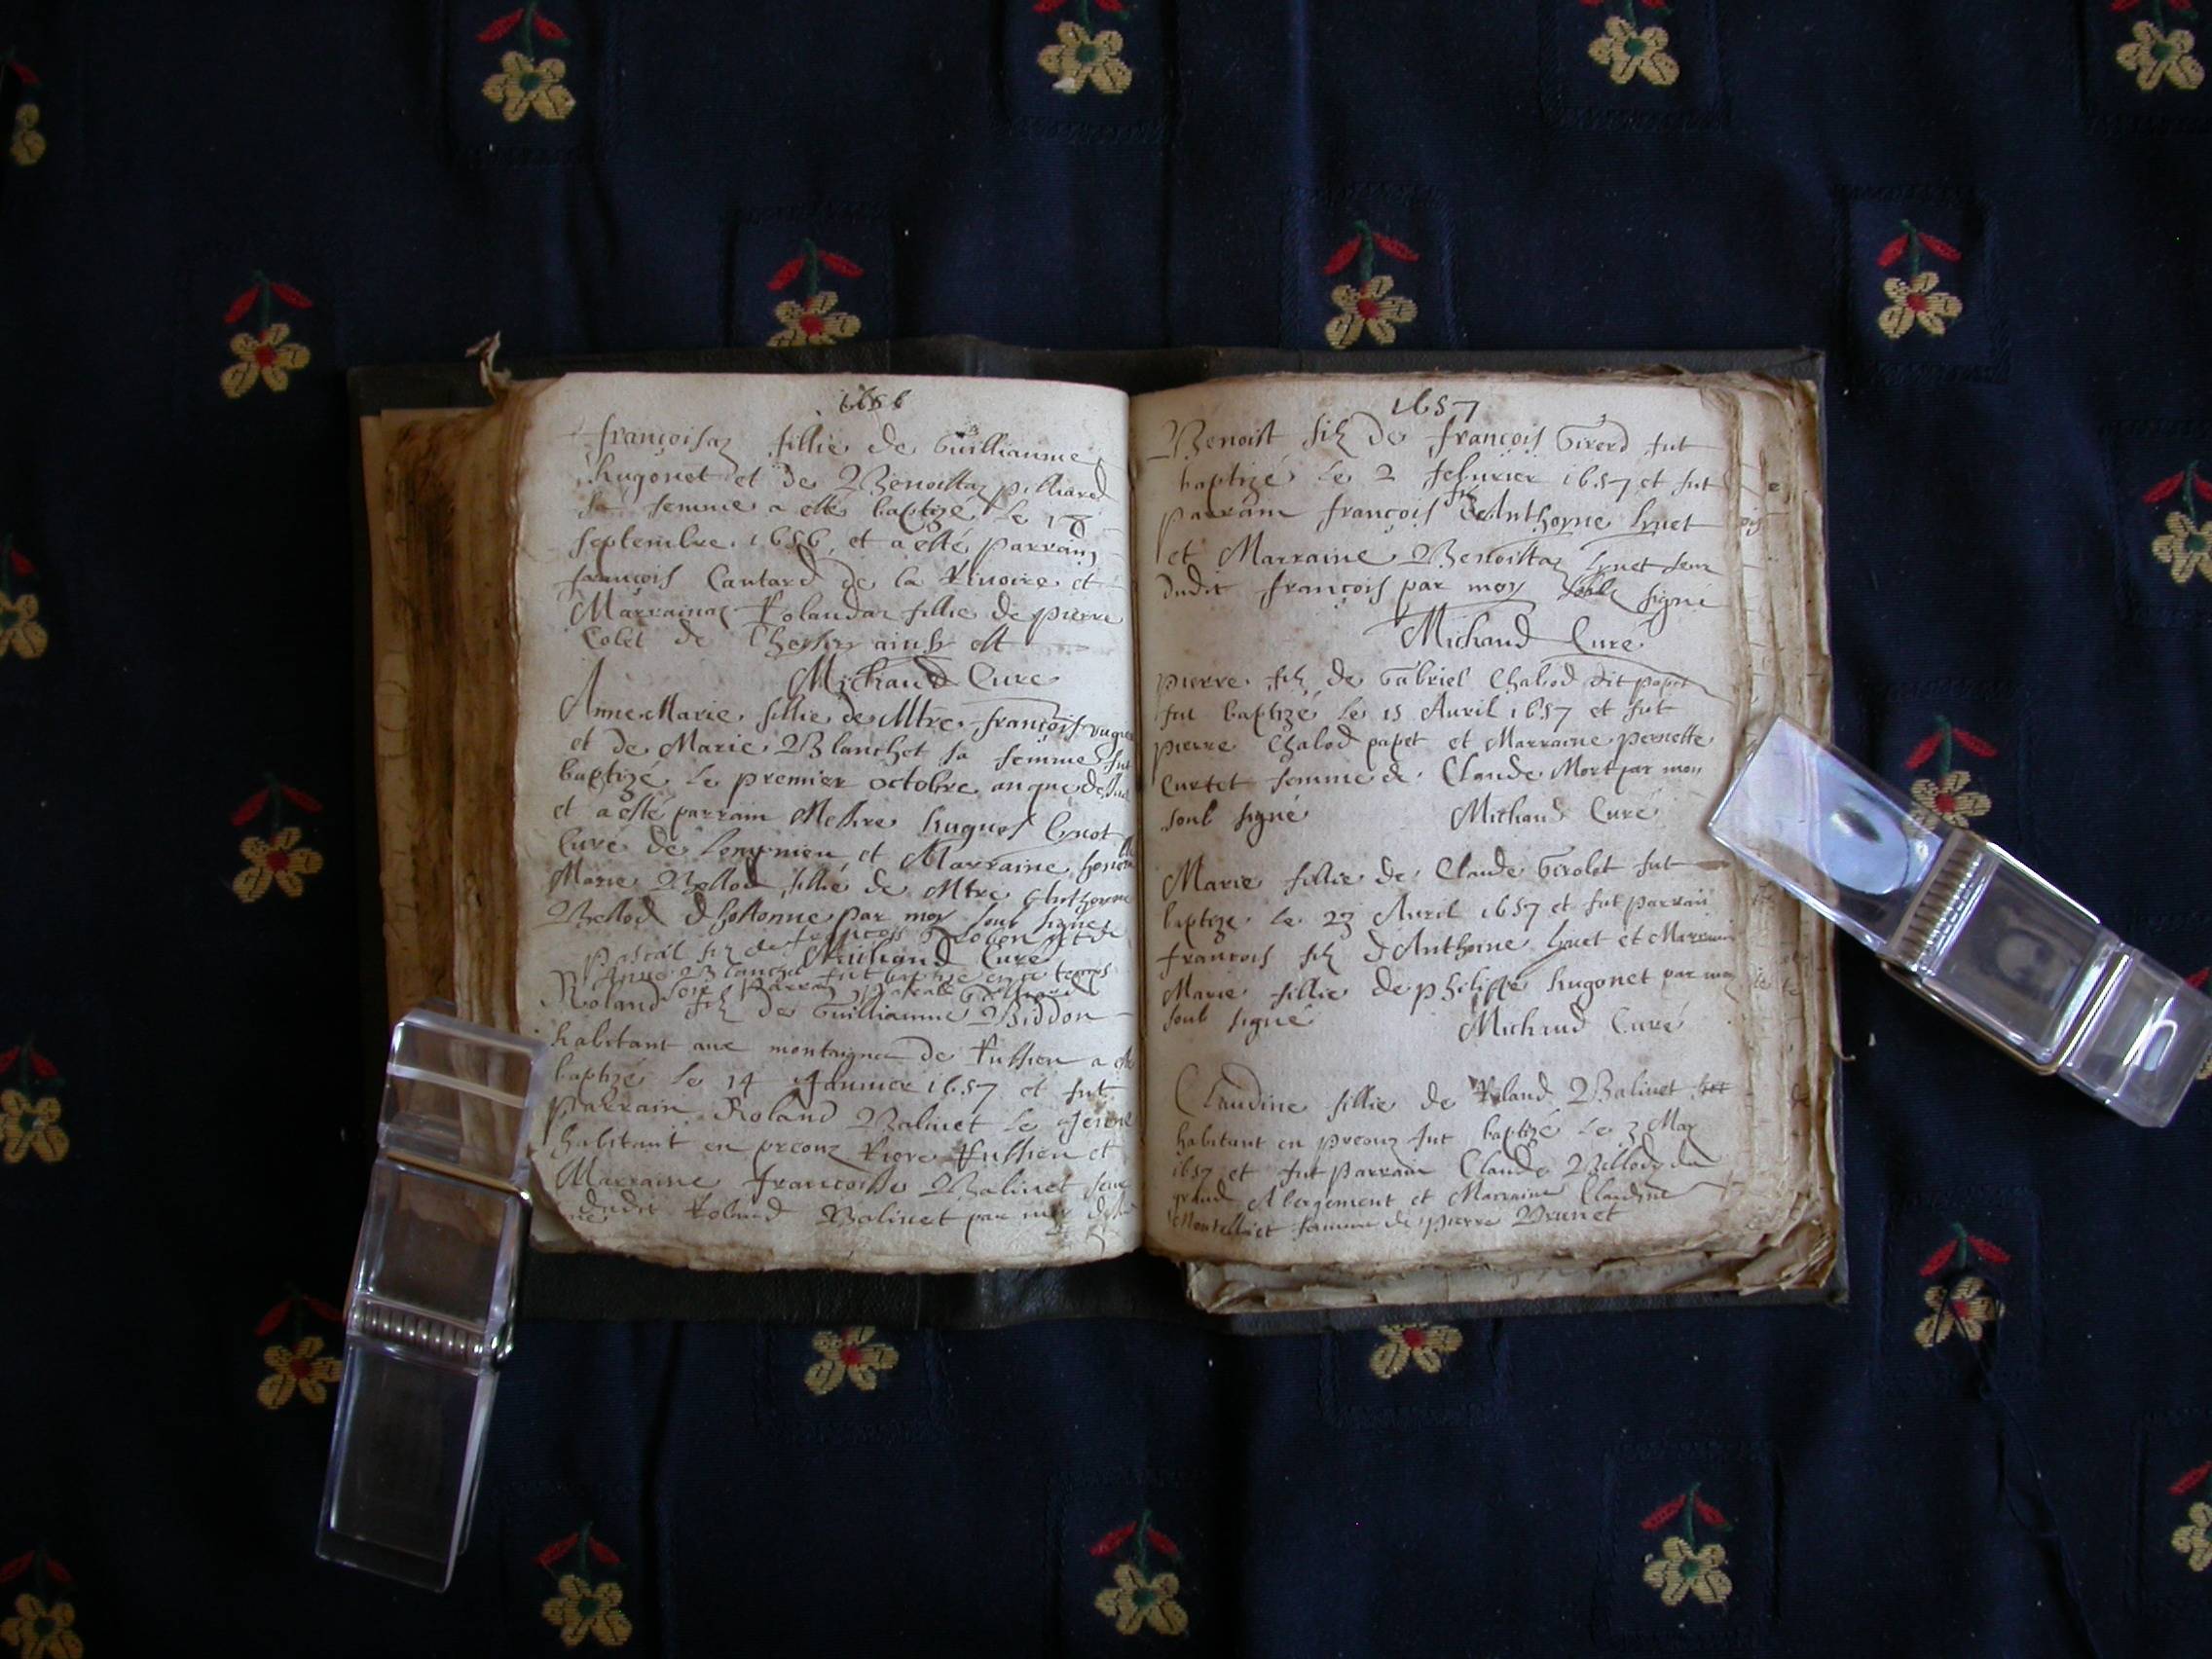 1656
françoisaz fillie de Guilliaume
hugonet et de Benoistaz pilliard
sa femme a esté baptizé le 18
septembre 1656 et a esté parrain
françois Cautard de la Rivoire et
Marrainaz Rolandaz fillie de pierre
Colet de ainsy est
Michaud Curé
Anne Marie fillie de Mtre françois
et de Marie Blanchet sa femme fut
baptizé le premier octobre an que dessus
et a esté parrain Messire hugues Lynet
Curé de et Marraine
Marie Bellod fillie de Mtre Anthoyne
Bellod d'hostonne par moy soub signé
pascal filz de françois et de
Michaud Curé
Anne Blanchet fut baptizé en ce temps
son parrain pascal
Roland filz de Guilliaume Biddon
habitant aux montaignes de Ruffieu a esté
baptizé le 14 Janvier 1657 et fut
parrain Roland Balivet le Jeune
habitant en precuz Riere Ruffieu et
Marraine françoise Balivet
dudit Roland Balivet par moy
1657
Benoist filz de françois Girerd fut
baptizé le 2 febvrier 1657 et fut
parrain françois filz de Anthoyne Lynet
et Marraine Benoistaz Lynet seur
dudit françois par moy soub signé
Michaud Curé
pierre filz de Gabriel Chalod dit papet
fut baptizé le 15 Avril 1657 et fut
pierre Chalod papet et Marraine pernette
Curtet femme de Claude Mort par moy
soub signé Michaud Curé
Marie fillie de Claude Girolet fut
baptizé le 23 Avril 1657 et fut parrain
françois filz d'Anthoine Lynet et Marraine
Marie fillie de philippe hugonet par moy
soub signé Michaud Curé
Claudine fillie de Roland Balivet
habitant en precuz fut baptizé le 3 May
1657 et fut parrain Claude Bellod du
grand Abergement et Marraine Claudine
femme de pierre Brunet